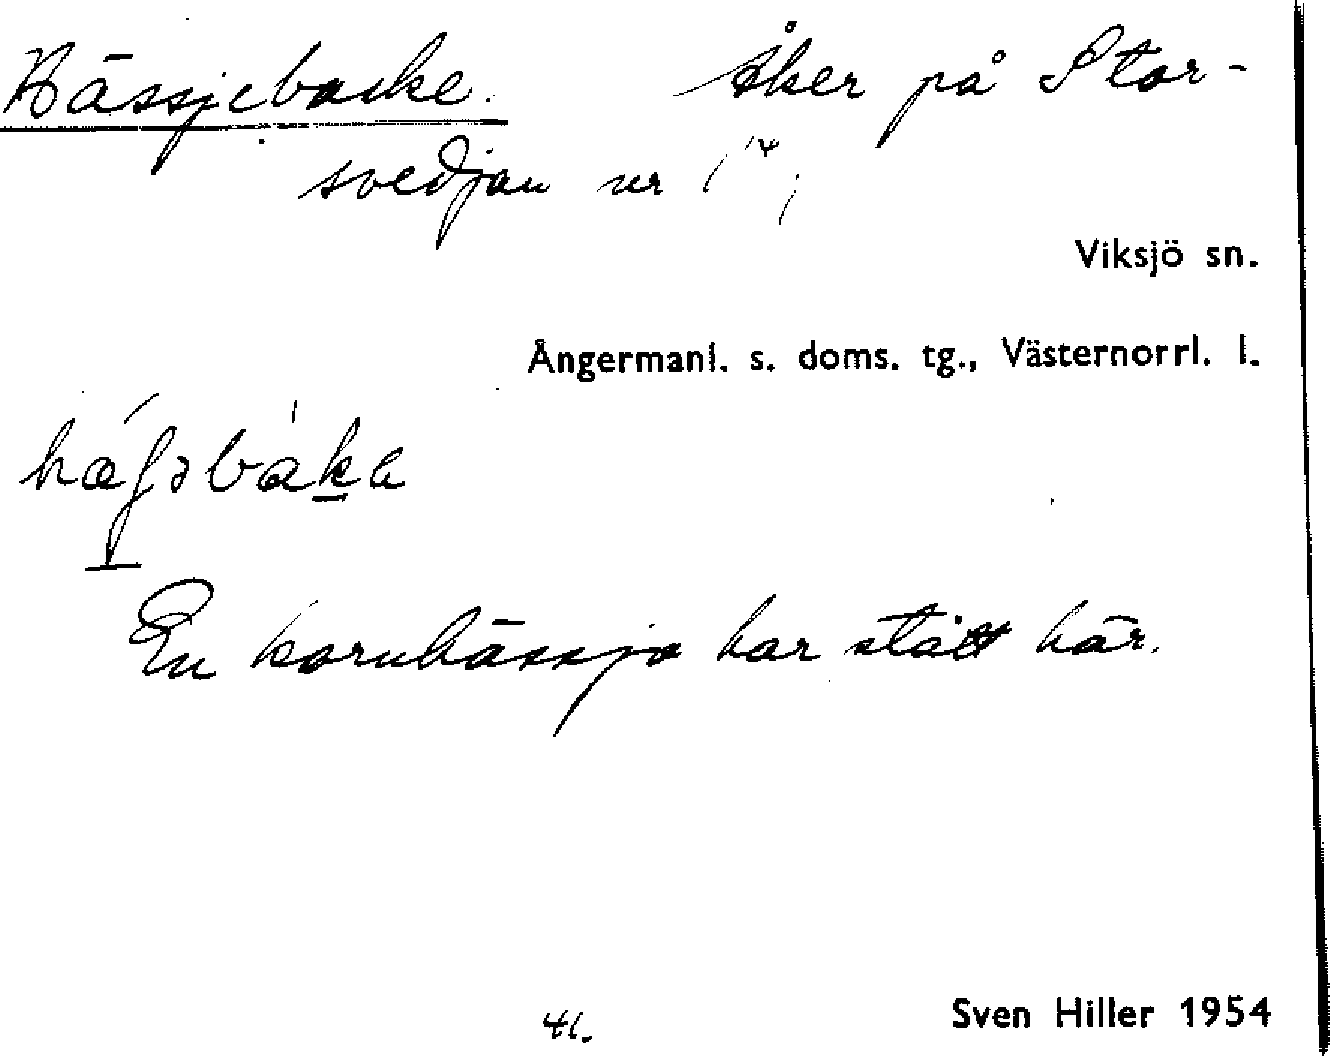 Hässjebacke. Åker på Stor-
svedjan nr 1¹⁴;
Viksjö sn.
Ångermanl. s. doms. tg., Västernorrl. l.
En kornhässja har stått här.
41.
Sven Hiller 1954